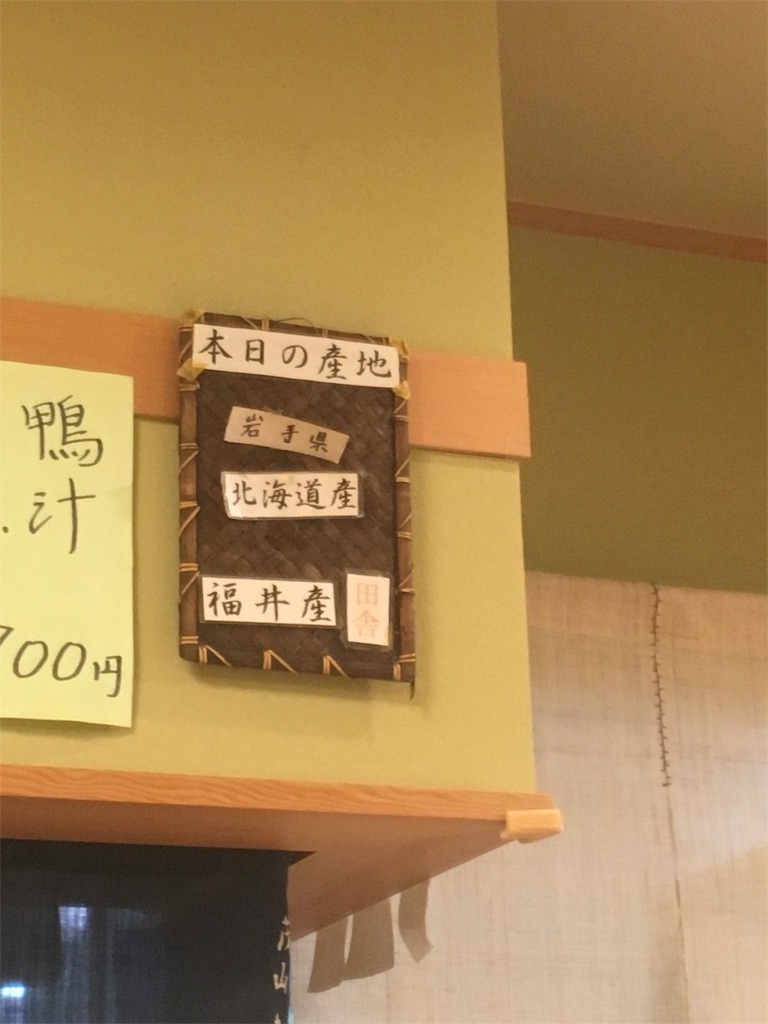 本日の産地
岩手県
北海道産
福井産
田舎
鴨
汁
700円